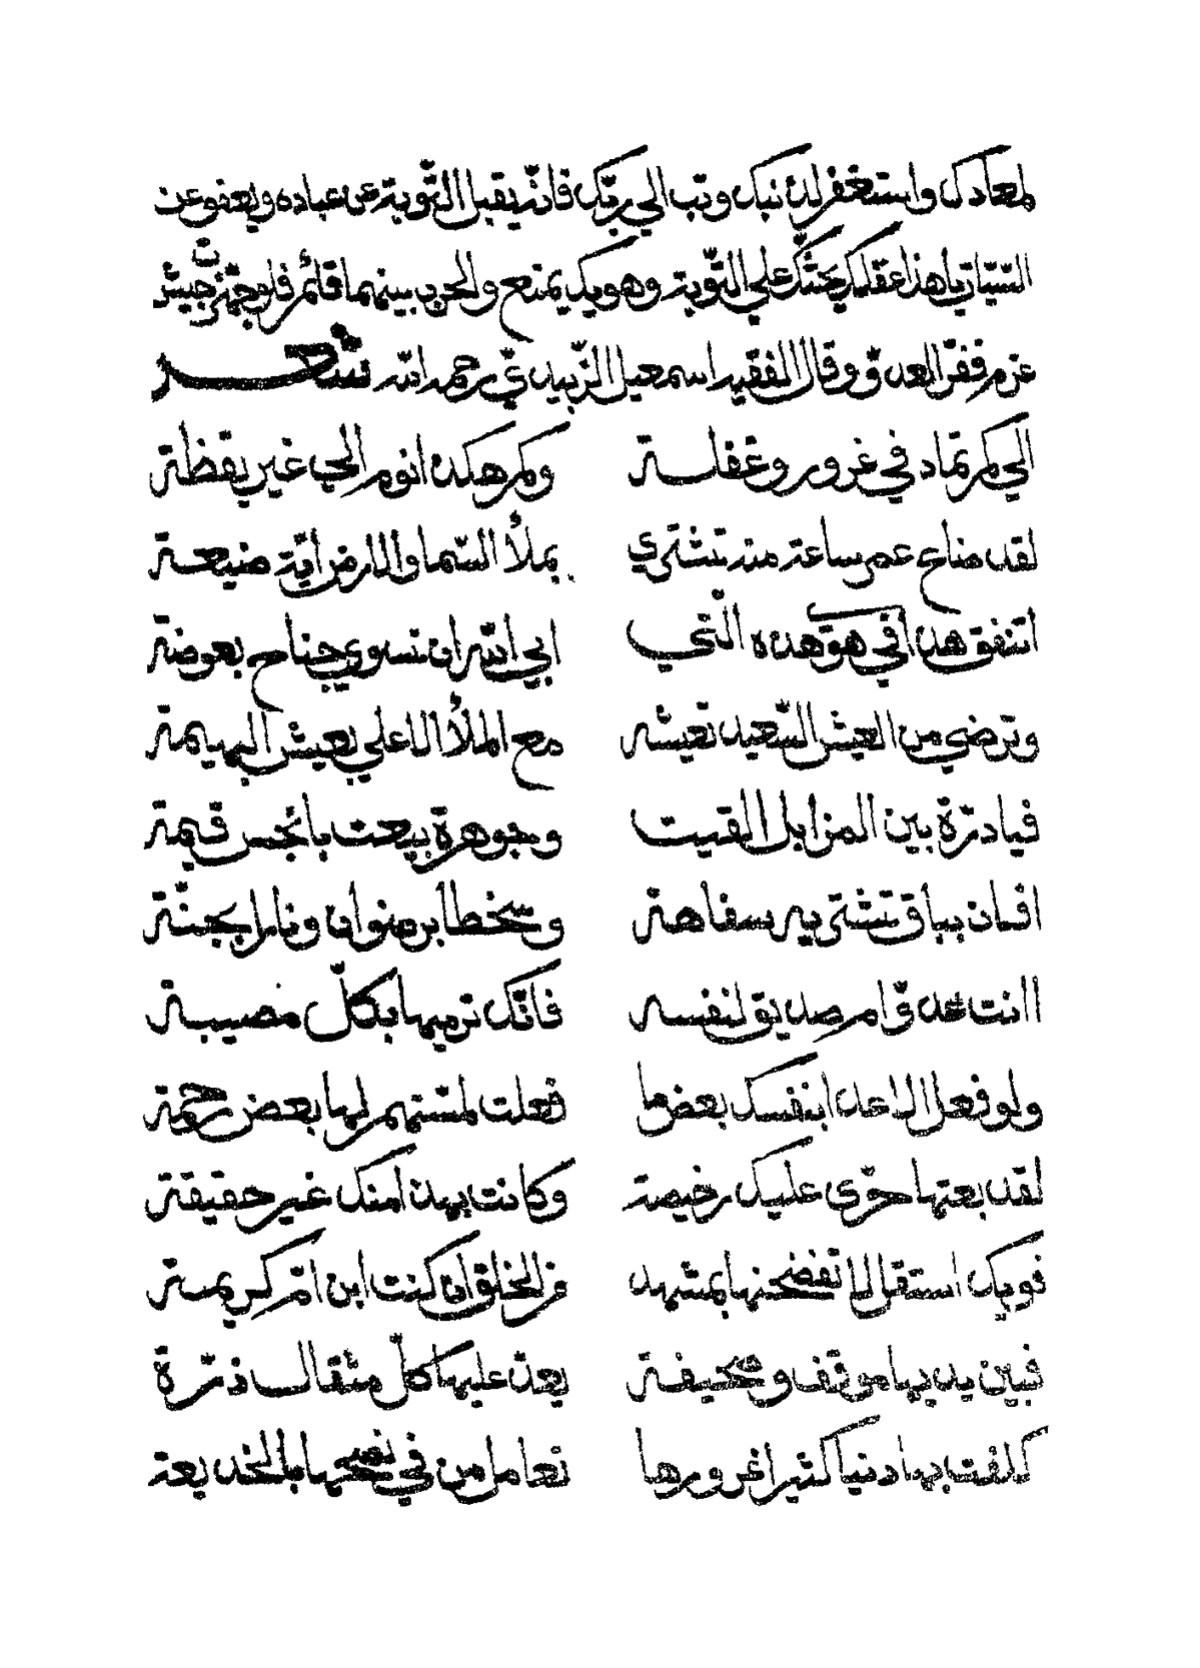 لمعادك واستغفر لذنبك وتب الي ربّك فانّه يقبل التّوبة عن عباده ويعفو عن
السّيّات يا هذا عقلك يحثّك علي التّوبة وهويك يمنع والحرب بينهما قائم فلو جهّزت جيش
عزم فرّ العدوّ وقال الفقيه اسمعيل الزّبيديّ رحمه اللّه شعر
الي كم تماد في غرور وغفلة وكم هكذا نوم الي غير يقظة
لقد ضاع عمر ساعة منه تشتري بملأ السّما والارض أيّة ضيعة
اتنفق هذا في هوي هذه الّتي ابي اللّه ان تسوي جناح بعوضة
وترضي من العيش السّعيد تعيشه مع الملأ الاعلي بعيش البهيمة
فيا درّة بين المزابل القيت وجوهرة بيعت بابخس قيمة
افان بباق تشتريه سفاهة وسخطا برضوان ونارا بجنّة
اانت عدوّ ام صديق لنفسه فانّك ترميها بكلّ مصيبة
ولو فعل الاعدا بنفسك بعض ما فعلت لمسّتهم لها بعض رحمة
لقد بعتها حوّي عليك رخيصة وكانت بهذا منك غير حقيقة
فويك استقل لا تفضحنها بمشهد من الخلق ان كنت ابن امّ كريمة
فبين يديها موقف وصحيفة يعدّ عليها كلّ مثقال ذرّة
كلفت بها دنيا كثيرا غرورها تعامل من في نصحها بالخديعة